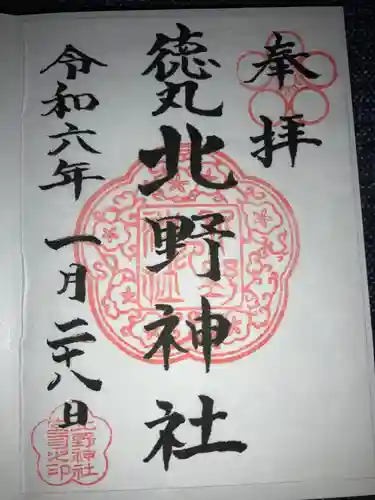 奉拝
徳丸北野神社
令和六年一月二十八日
北野神社